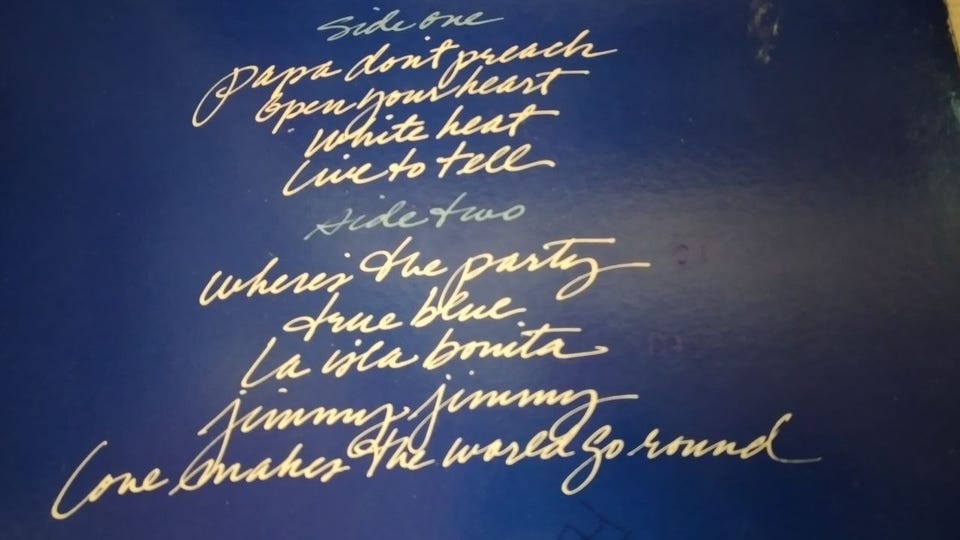 side one
papa don't preach
open your heart
white heat
live to tell
side two
where's the party
true blue
la isla bonita
jimmy jimmy
love makes the world go round